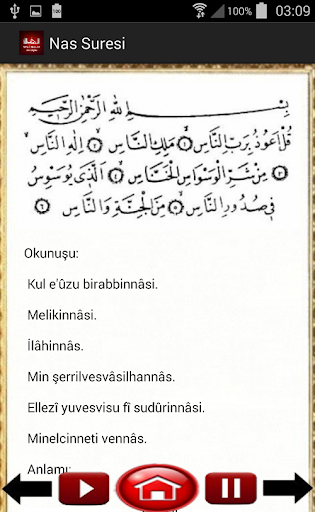 100% 03:09
Nas Suresi
بِسْمِ اللهِ الرَّحْمٰنِ الرَّحِيمِ
قُلْ اَعُوذُ بِرَبِّ النَّاسِ ﴿١﴾ مَلِكِ النَّاسِ ﴿٢﴾ اِلٰهِ النَّاسِ
﴿٣﴾ مِنْ شَرِّ الْوَسْوَاسِ الْخَنَّاسِ ﴿٤﴾ اَلَّذِى يُوَسْوِسُ
فِى صُدُورِ النَّاسِ ﴿٥﴾ مِنَ الْجِنَّةِ وَالنَّاسِ ﴿٦﴾
Okunuşu:
Kul e'ûzu birabbinnâsi.
Melikinnâsi.
İlâhinnâs.
Min şerrilvesvâsilhannâs.
Ellezî yuvesvisu fî sudûrinnâsi.
Minelcinneti vennâs.
Anlamı: